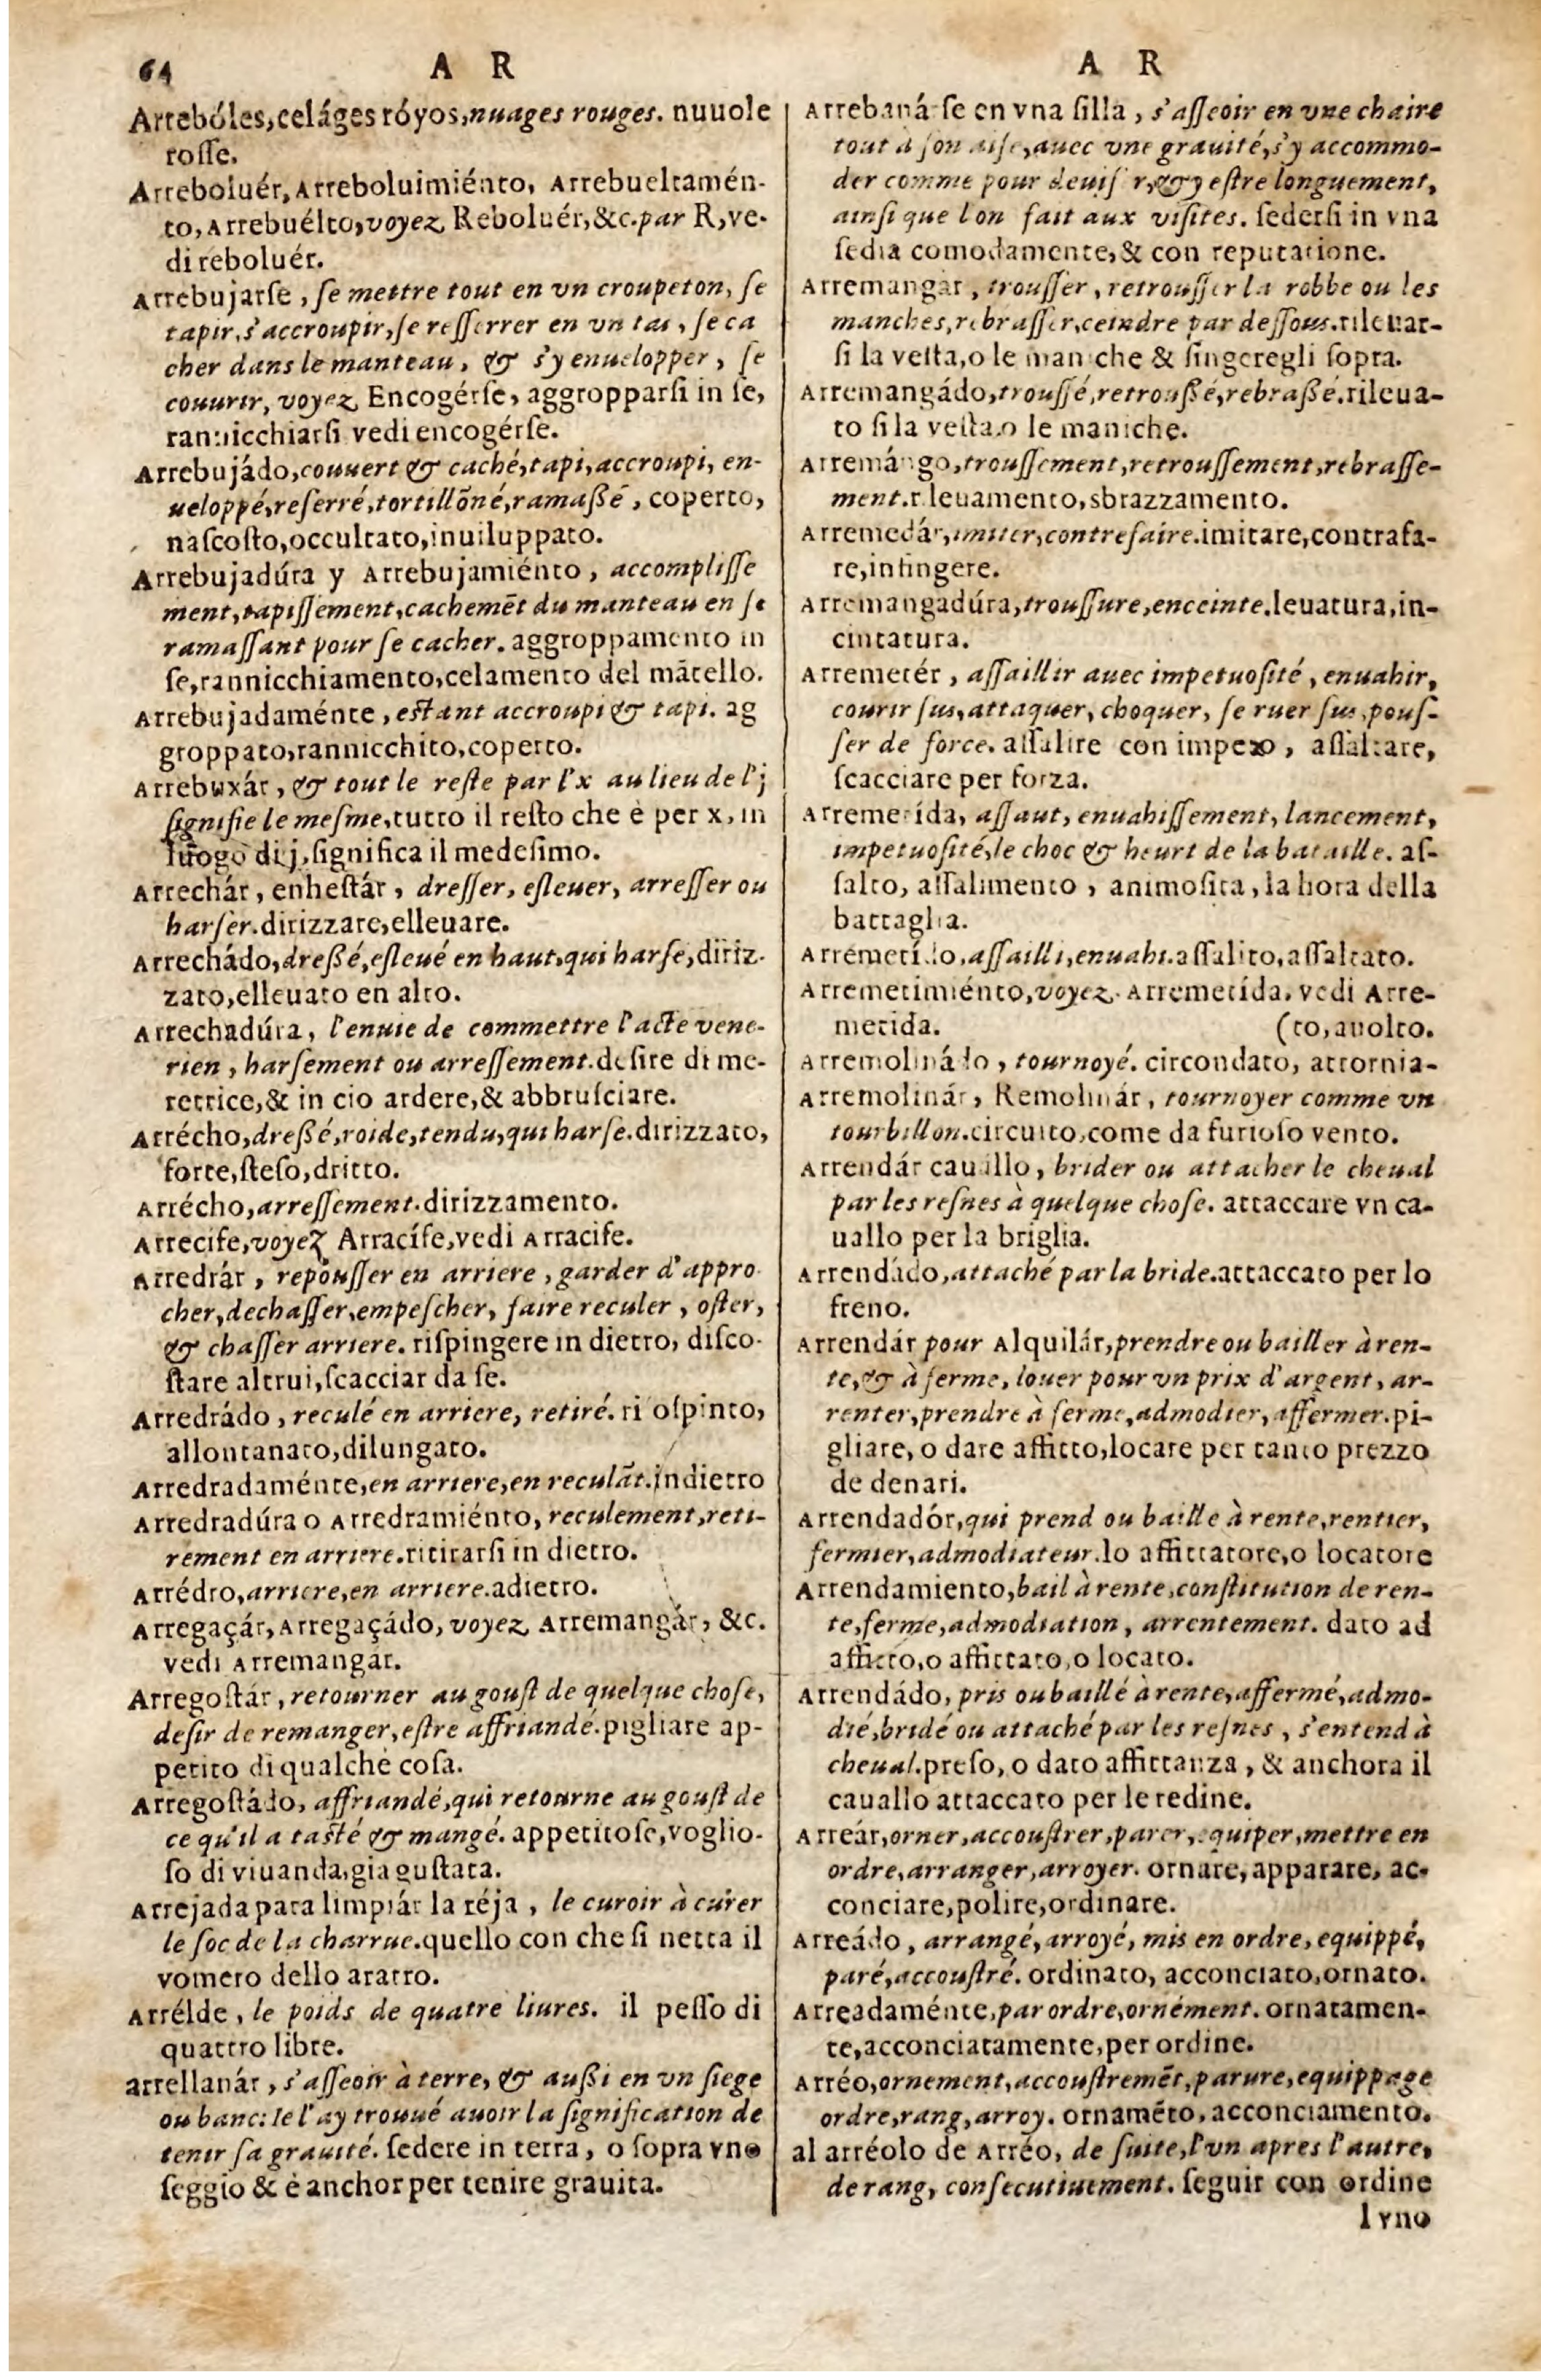 64 A R
Arrebóles,celáges róyos,nuages rouges. nuuole
rosse.
Arreboluér, Arreboluimiénto, Arrebueltamén-
to, Arrebuélto,voyez Reboluér,&c.par R,ve-
di reboluér.
Arrebujarse, se mettre tout en vn croupeton, se
tapir,s'accroupir,se resserrer en vn tas, se ca
cher dans le manteau, & s'y enuelopper, se
couurir, voyez Encogérse, aggropparsi in se,
rannicchiarsi vedi encogérse.
Arrebujádo,couuert & caché,tapi,accroupi, en-
ueloppé,reserré,tortillõné,ramassé, coperto,
nascosto,occultato,inuiluppato.
Arrebujadúra y Arrebujamiénto, accomplisse
ment,tapissement,cachemẽt du manteau en se
ramassant pour se cacher. aggroppamento in
se,rannicchiamento,celamento del mãtello.
Arrebujadaménte, estant accroupi & tapi. ag
groppato,rannicchito,coperto.
Arrebuxár, & tout le reste par l'x au lieu de l'j
signifie le mesme,tutto il resto che è per x, in
luogo di j,significa il medesimo.
Arrechár, enhestár, dresser, esleuer, arresser ou
harser.dirizzare,elleuare.
Arrechádo,dressé,esleué en haut,qui harse,diriz-
zato,elleuato en alto.
Arrechadúra, l'enuie de commettre l'acte vene-
rien, harsement ou arressement.desire di me-
retrice,& in cio ardere,& abbrusciare.
Arrécho,dressé,roide,tendu,qui harse.dirizzato,
forte,steso,dritto.
Arrécho,arressement.dirizzamento.
Arrecife,voyez Arracífe,vedi Arracife.
Arredrár, repousser en arriere, garder d'appro
cher,dechasser,empescher, faire reculer, oster,
& chasser arriere. rispingere in dietro, disco-
stare altrui,scacciar da se.
Arredrádo, reculé en arriere, retiré. ri ospinto,
allontanato,dilungato.
Arredradaménte,en arriere,en reculãt.indietro
Arredradúra o Arredramiénto, reculement,reti-
rement en arriere.ritirarsi in dietro.
Arrédro,arriere,en arriere.adietro.
Arregaçár, Arregaçádo, voyez Arremangár, &c.
vedi Arremangar.
Arregostár, retourner au goust de quelque chose,
desir de remanger,estre affriandé.pigliare ap-
petito di qualche cosa.
Arregostádo, affriandé,qui retourne au goust de
ce qu'il a tasté & mangé. appetitoso,voglio-
so di viuanda,gia gustata.
Arrejada para limpiár la réja, le curoir à curer
le soc de la charrue.quello con che si netta il
vomero dello aratro.
Arrélde, le poids de quatre liures. il pesso di
quattro libre.
arrellanár, s'asseoir à terre, & aussi en vn siege
ou banc: Ie l'ay trouué auoir la signification de
tenir sa grauité. sedere in terra, o sopra vno
seggio & è anchor per tenire grauita.
A R
Arrebaná se en vna silla, s'asseoir en vne chaire
tout à son aise,auec vne grauité,s'y accommo-
der comme pour deuiser,& y estre longuement,
ainsi que lon fait aux visites. sedersi in vna
sedia comodamente,& con reputatione.
Arremangár, trousser, retrousser la robbe ou les
manches,rebrasser,ceindre par dessous.rileuar-
si la vesta,o le maniche & singeregli sopra.
Arremangádo,troussé,retroussé,rebrassé.rileua-
to si la vesta,o le maniche.
Arremángo,troussement,retroussement,rebrasse-
ment.rileuamento,sbrazzamento.
Arremedár,imiter,contrefaire.imitare,contrafa-
re,infingere.
Arremangadúra,troussure,enceinte.leuatura,in-
cintatura.
Arremetér, assaillir auec impetuosité, enuahir,
courir sus,attaquer, choquer, se ruer sus,pous-
ser de force. assalire con impeto, assaltare,
scacciare per forza.
Arremetída, assaut, enuahissement, lancement,
impetuosité,le choc & heurt de la bataille. as-
salto, assalimento, animosita, la hora della
battaglia.
Arremetído,assailli,enuahi.assalito,assaltato.
Arremetimiénto,voyez Arremetída. vedi Arre-
metida. (to,auolto.
Arremolinádo, tournoyé. circondato, attornia-
Arremolinár, Remolinár, tournoyer comme vn
tourbillon.circuito,come da furioso vento.
Arrendár cauallo, brider ou attacher le cheual
par les resnes à quelque chose. attaccare vn ca-
uallo per la briglia.
Arrendádo,attaché par la bride.attaccato per lo
freno.
Arrendár pour Alquilár,prendre ou bailler à ren-
te,& à ferme, louer pour vn prix d'argent, ar-
renter,prendre à ferme,admodier, affermer.pi-
gliare, o dare affitto,locare per tanto prezzo
de denari.
Arrendadór,qui prend ou baille à rente,rentier,
fermier,admodiateur.lo affittatore,o locatore
Arrendamiento,bail à rente,constitution de ren-
te,ferme,admodiation, arrentement. dato ad
affitto,o affittato,o locato.
Arrendádo, pris ou baillé à rente,affermé,admo-
dié,bridé ou attaché par les resnes, s'entend à
cheual.preso, o dato affittanza, & anchora il
cauallo attaccato per le redine.
Arreár,orner,accoustrer,parer,equiper,mettre en
ordre,arranger,arroyer. ornare,apparare, ac-
conciare,polire,ordinare.
Arreádo, arrangé,arroyé, mis en ordre,equippé,
paré,accoustré. ordinato, acconciato,ornato.
Arreadaménte,par ordre,ornément. ornatamen-
te,acconciatamente,per ordine.
Arréo,ornement,accoustremẽt,parure,equippage
ordre,rang,arroy. ornamẽto, acconciamento.
al arréolo de Arréo, de suite,l'vn apres l'autre,
de rang, consecutiuement. seguir con ordine
l vno